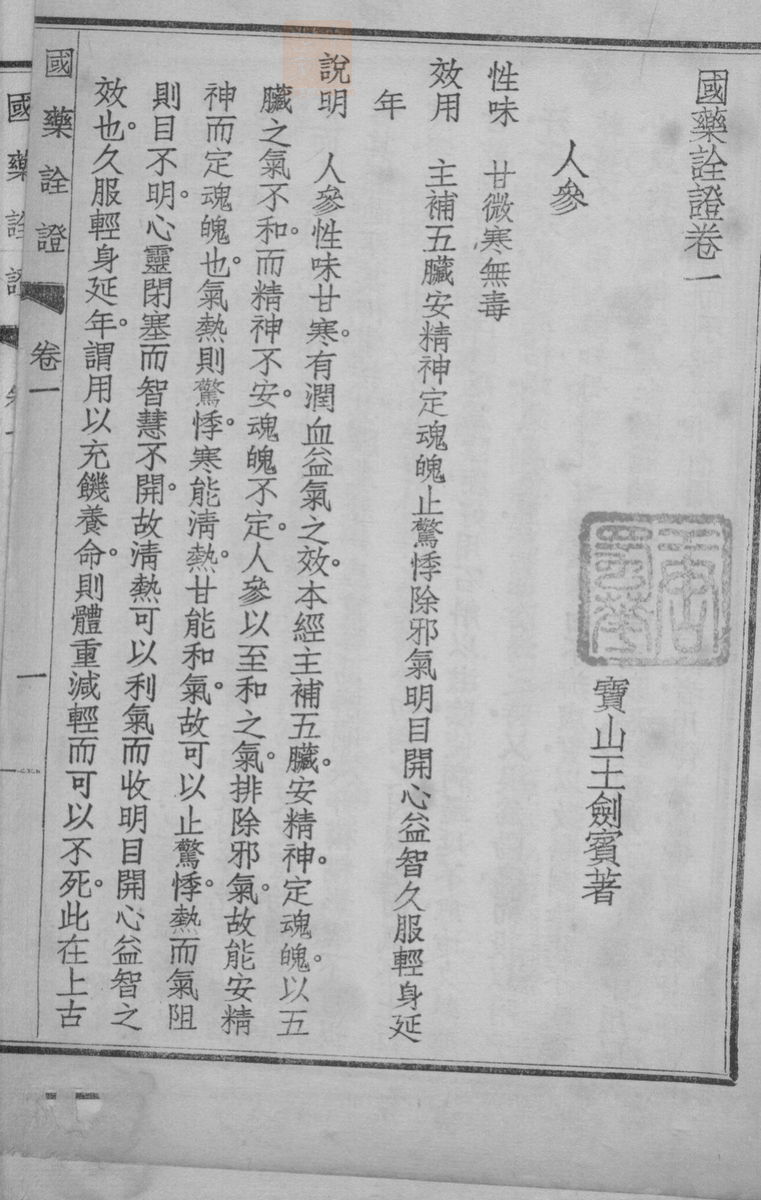 國藥詮證卷一
寶山王劍賓著
人參
性味　甘微寒無毒
效用　主補五臟安精神定魂魄止驚悸除邪氣明目開心益智久服輕身延
年
說明　人參性味甘寒。有潤血益氣之效。本經主補五臟。安精神。定魂魄。以五
臟之氣不和。而精神不安。魂魄不定。人參以至和之氣。排除邪氣。故能安精
神而定魂魄也。氣熱則驚悸。寒能清熱。甘能和氣。故可以止驚悸。熱而氣阻
則目不明。心靈閉塞而智慧不開。故清熱可以利氣而收明目開心益智之
效也。久服輕身延年。謂用以充饑養命。則體重減輕而可以不死。此在上古
國藥詮證　卷一　一
國藥詮證